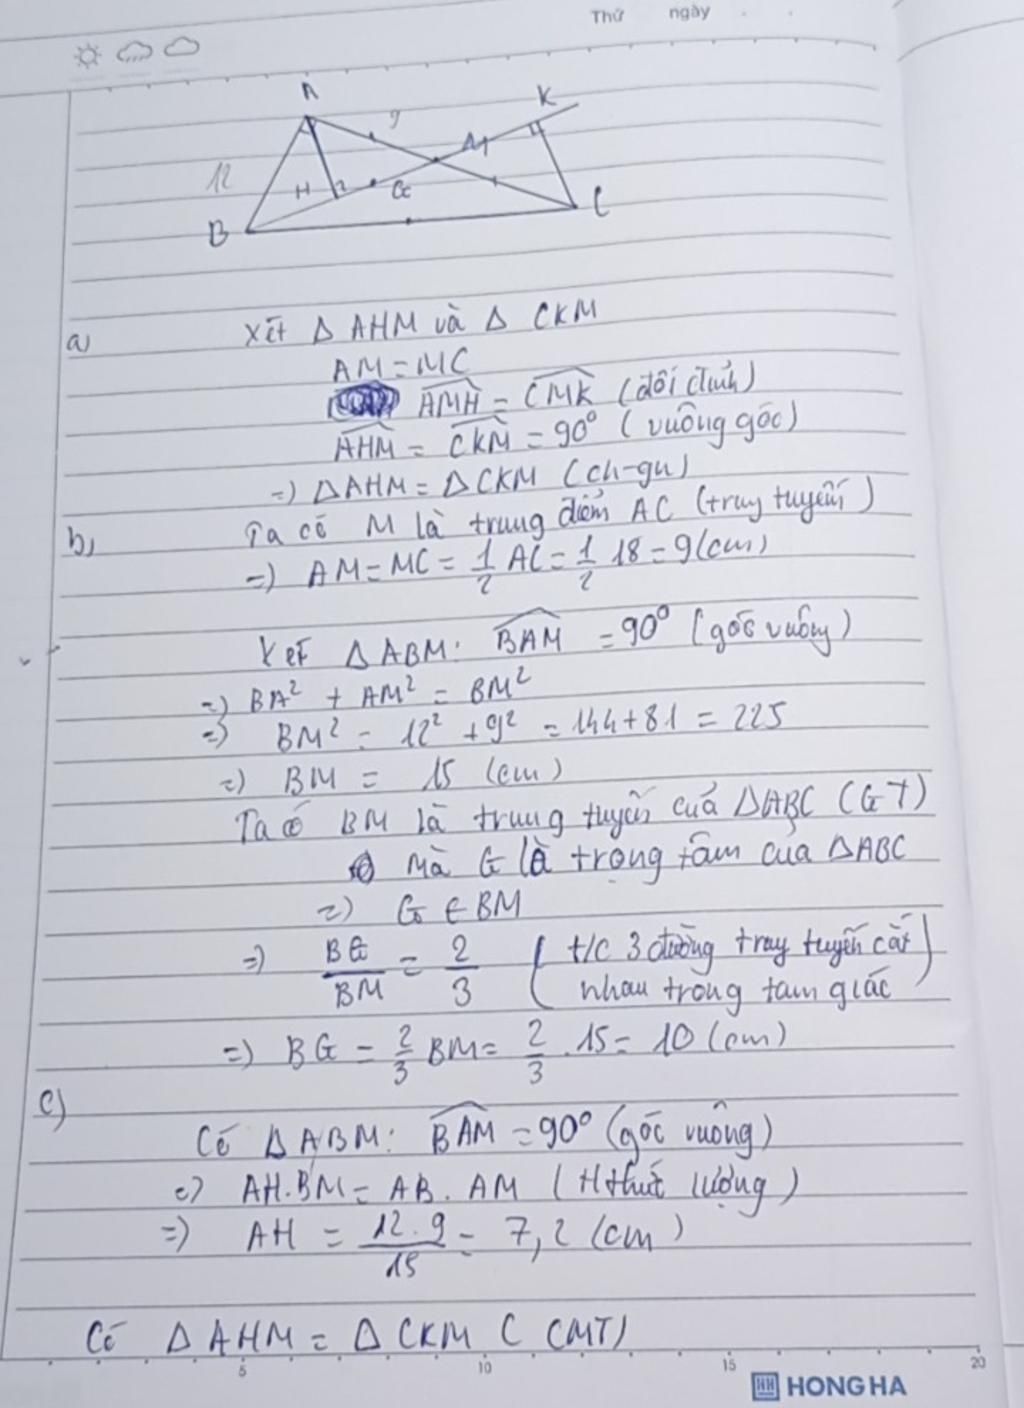 Thứ ngày
A
K
9
M
12
H
G
B
C
a) Xét Δ AHM và Δ CKM
AM = MC
AMH = CMK (đối đỉnh)
AHM = CKM = 90° (vuông góc)
=) ΔAHM = ΔCKM (ch-gn)
b) Ta có M là trung điểm AC (trung tuyến)
=) AM = MC = 1/2 AC = 1/2 18 = 9 (cm)
Xét Δ ABM: BAM = 90° (góc vuông)
=) BA² + AM² = BM²
=) BM² = 12² + 9² = 144 + 81 = 225
=) BM = 15 (cm)
Ta có BM là trung tuyến của ΔABC (GT)
Mà G là trọng tâm của ΔABC
=) G ∈ BM
=) BG/BM = 2/3 (t/c 3 đường trung tuyến cắt
nhau trong tam giác)
=) BG = 2/3 BM = 2/3 . 15 = 10 (cm)
c)
Có Δ ABM: BAM = 90° (góc vuông)
=) AH.BM = AB. AM (Hthức lượng)
=) AH = 12.9/15 = 7,2 (cm)
Có Δ AHM = Δ CKM (CMT)
5 10 15 20
HH HONG HA